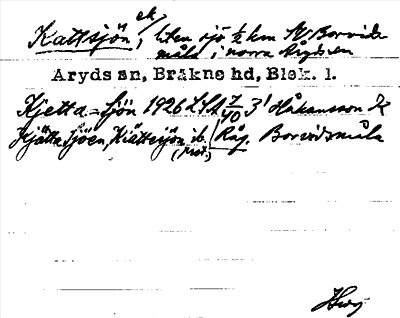 Kattsjön, ek, liten sjö ½ km SV Borvids
måla i norra Aryds sn
Aryds sn, Bräkne hd, Blek. l.
Kjetta-Sjön 1926 LSA 7/40 3¹ Håkansson &
Kjätta Sjöen, Kiättesjön ib. / Råg. Borvidsmåla